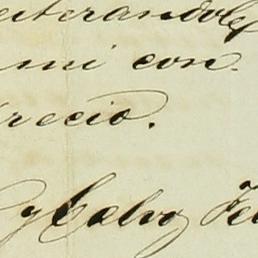 eiterandole
mi con-
recio.
y Calvo Fe